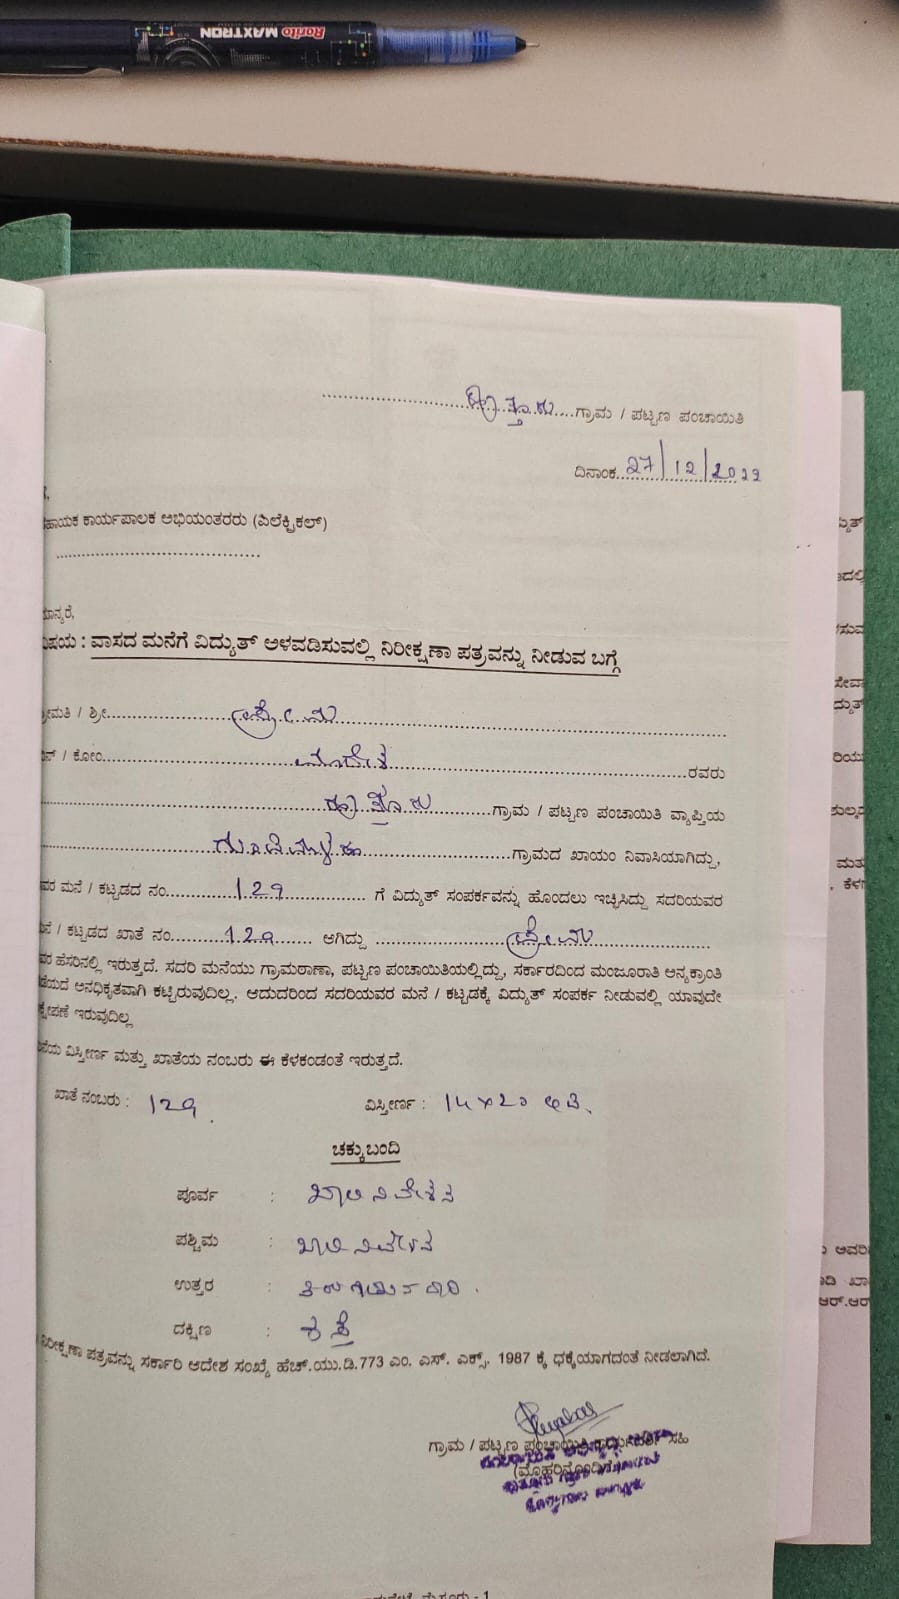 Rorito MAXTRON
ಗ್ರಾಮ / ಪಟ್ಟಣ ಪಂಚಾಯಿತಿ
ದಿನಾಂಕ 27/12/2022
ಹಾಯಕ ಕಾರ್ಯಪಾಲಕ ಅಭಿಯಂತರರು (ಎಲೆಕ್ಟ್ರಿಕಲ್)
ಮಾನ್ಯರೆ,
ವಿಷಯ : ವಾಸದ ಮನೆಗೆ ವಿದ್ಯುತ್ ಅಳವಡಿಸುವಲ್ಲಿ ನಿರೀಕ್ಷಣಾ ಪತ್ರವನ್ನು ನೀಡುವ ಬಗ್ಗೆ
ಶ್ರೀಮತಿ / ಶ್ರೀ ಪ್ರೇಮ
ಬಿನ್ / ಕೋಂ ಮಾದೇಶ ರವರು
ಗ್ರಾಮ / ಪಟ್ಟಣ ಪಂಚಾಯಿತಿ ವ್ಯಾಪ್ತಿಯ
ಗ್ರಾಮದ ಖಾಯಂ ನಿವಾಸಿಯಾಗಿದ್ದು,
ವರ ಮನೆ / ಕಟ್ಟಡದ ನಂ 129 ಗೆ ವಿದ್ಯುತ್ ಸಂಪರ್ಕವನ್ನು ಹೊಂದಲು ಇಚ್ಛಿಸಿದ್ದು ಸದರಿಯವರ
ಮನೆ / ಕಟ್ಟಡದ ಖಾತೆ ನಂ 129 ಆಗಿದ್ದು ಪ್ರೇಮ
ವರ ಹೆಸರಿನಲ್ಲಿ ಇರುತ್ತದೆ. ಸದರಿ ಮನೆಯು ಗ್ರಾಮಠಾಣಾ, ಪಟ್ಟಣ ಪಂಚಾಯಿತಿಯಲ್ಲಿದ್ದು, ಸರ್ಕಾರದಿಂದ ಮಂಜೂರಾತಿ ಅನ್ಯಕ್ರಾಂತಿ
ಡೆಯದೆ ಅನಧಿಕೃತವಾಗಿ ಕಟ್ಟಿರುವುದಿಲ್ಲ. ಆದುದರಿಂದ ಸದರಿಯವರ ಮನೆ / ಕಟ್ಟಡಕ್ಕೆ ವಿದ್ಯುತ್ ಸಂಪರ್ಕ ನೀಡುವಲ್ಲಿ ಯಾವುದೇ
ಕ್ಷೇಪಣೆ ಇರುವುದಿಲ್ಲ
ನೆಯ ವಿಸ್ತೀರ್ಣ ಮತ್ತು ಖಾತೆಯ ನಂಬರು ಈ ಕೆಳಕಂಡಂತೆ ಇರುತ್ತದೆ.
ಖಾತೆ ನಂಬರು : 129 ವಿಸ್ತೀರ್ಣ : 14×20 ಅಡಿ.
ಚಕ್ಕುಬಂದಿ
ಪೂರ್ವ : ಖಾಲಿ ನಿವೇಶನ
ಪಶ್ಚಿಮ : ಖಾಲಿ ನಿವೇಶನ
ಉತ್ತರ :
ದಕ್ಷಿಣ : ರಸ್ತೆ
ನಿರೀಕ್ಷಣಾ ಪತ್ರವನ್ನು ಸರ್ಕಾರಿ ಆದೇಶ ಸಂಖ್ಯೆ ಹೆಚ್.ಯು.ಡಿ.773 ಎಂ. ಎಸ್. ಎಕ್ಸ್, 1987 ಕ್ಕೆ ಧಕ್ಕೆಯಾಗದಂತೆ ನೀಡಲಾಗಿದೆ.
ಗ್ರಾಮ / ಪಟ್ಟಣ ಪಂಚಾಯಿತಿ ಸಹಿ
(ಮೊಹರಿನೊಂದಿಗೆ)